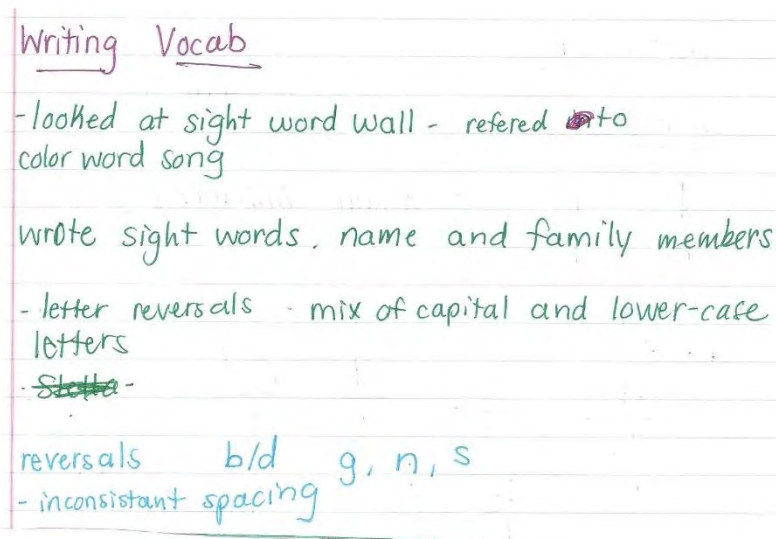 Writing Vocab
-looked at sight word wall - refered to
color word song
wrote sight words, name and family members
- letter reversals - mix of capital and lower-case
letters
reversals b/d g, n, s
- inconsistant spacing